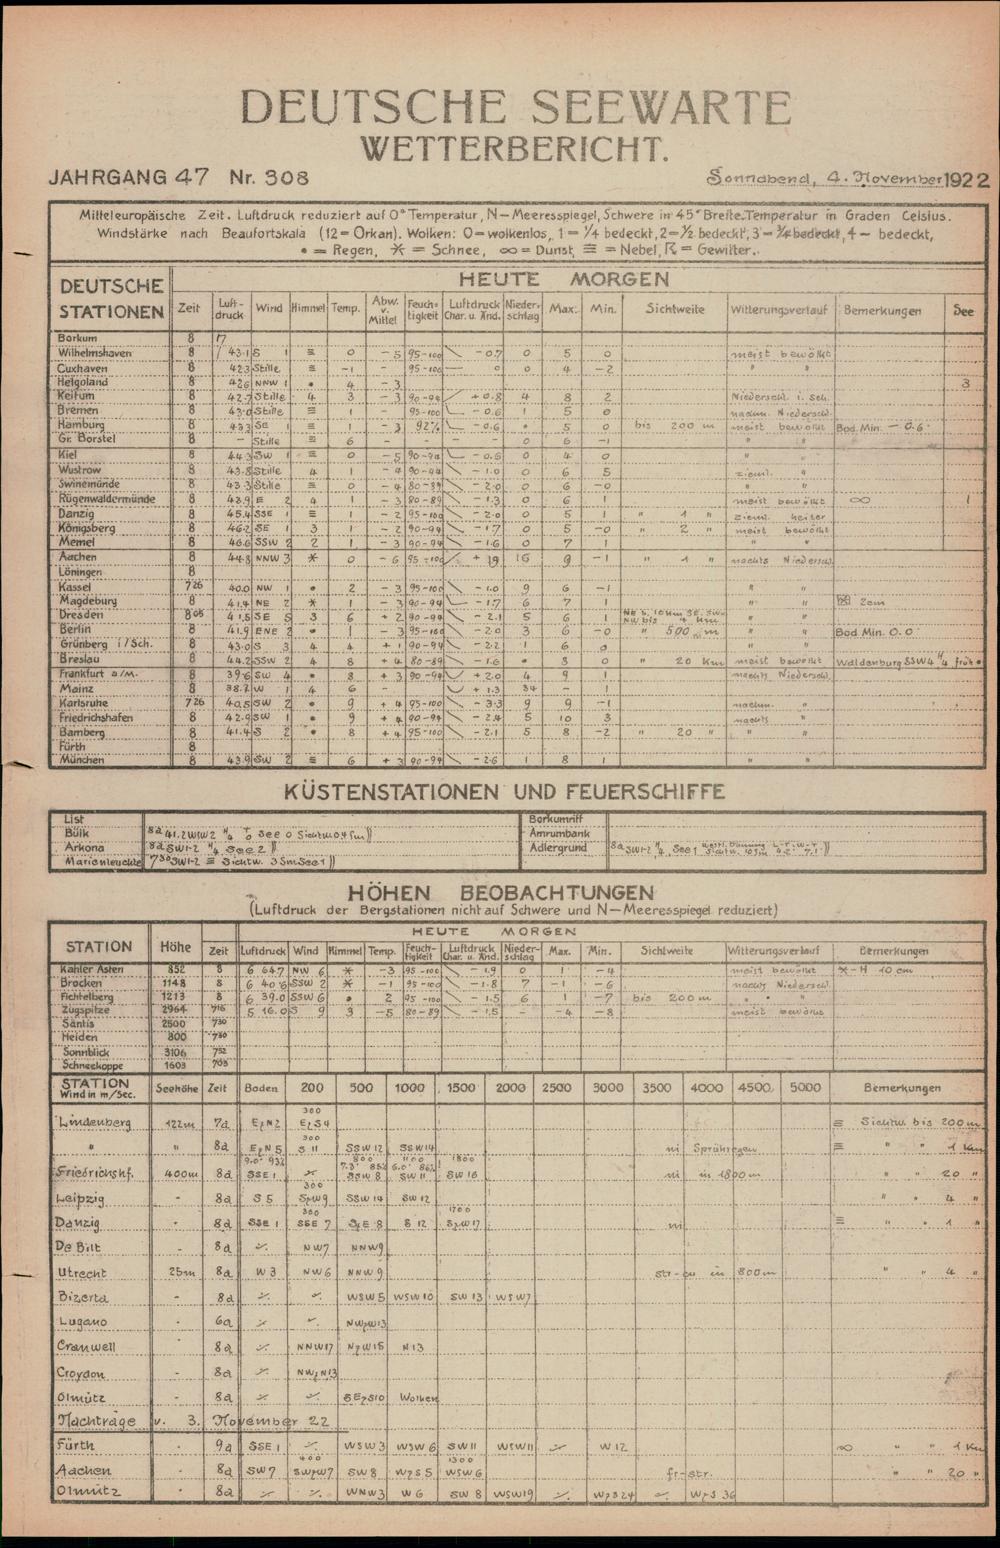 DEUTSCHE SEEWARTE
WETTERBERICHT.
JAHRGANG 47 Nr. 308 Sonnabend, 4. November 1922
Mitteleuropäische Zeit. Luftdruck reduziert auf 0° Temperatur, N—Meeresspiegel, Schwere in 45° Breite. Temperatur in Graden Celsius.
Windstärke nach Beaufortskala (12 = Orkan). Wolken: 0 = wolkenlos, 1 = ¼ bedeckt, 2 = ½ bedeckt, 3 = ¾ bedeckt, 4 — bedeckt,
• = Regen, ✶ = Schnee, ∞ = Dunst, ≡ = Nebel, ☈ = Gewitter.
DEUTSCHE STATIONEN HEUTE MORGEN
Zeit Luftdruck Wind Himmel Temp. Abw. v. Mittel Feuchtigkeit Luftdruck Char. u. Änd. Niederschlag Max. Min. Sichtweite Witterungsverlauf Bemerkungen See
Borkum 8 7
Wilhelmshaven 8 43.1 S 1 ≡ 0 -5 95-100 -0.7 0 5 0 meist bewölkt
Cuxhaven 8 42.3 Stille ≡ -1 - 95-100 0 0 4 -2 " "
Helgoland 8 42.6 NNW 1 • 4 -3 3
Keitum 8 42.7 Stille 4 3 -3 90-94 +0.8 4 8 2 Niederschl. i. Sch.
Bremen 8 43.0 Stille ≡ 1 - 95-100 -0.6 1 5 0 nachm. Niederschl.
Hamburg 8 43.3 SE 1 ≡ 1 -3 92% -0.6 • 5 0 bis 200 m meist bewölkt Bod. Min. -0.6
Gr. Borstel 8 - Stille ≡ 6 - - - 0 6 -1 " "
Kiel 8 44.3 SW 1 ≡ 0 -5 90-94 -0.6 0 4 0 " "
Wustrow 8 43.8 Stille 4 1 -4 90-94 -1.0 0 6 5 zieml. "
Swinemünde 8 43.3 Stille ≡ 0 -4 80-89 -2.0 0 6 -0 " "
Rügenwaldermünde 8 43.9 E 2 4 1 -3 80-89 -1.3 0 6 1 meist bewölkt ∞ 1
Danzig 8 45.4 SSE 1 ≡ 1 -2 95-100 -2.0 0 5 1 " 1 " zieml. heiter
Königsberg 8 46.2 SE 1 3 1 -2 90-94 -1.7 0 5 -0 " 2 " meist bewölkt
Memel 8 46.6 SSW 2 2 1 -3 90-94 -1.6 0 7 1 " "
Aachen 8 44.8 NNW 3 ✶ 0 -6 95-100 +19 16 9 -1 " 1 " nachts Niederschl.
Löningen 8
Kassel 7 26 40.0 NW 1 • 2 -3 95-100 -1.0 9 6 -1 " "
Magdeburg 8 41.4 NE 2 ✶ 1 -3 90-94 -1.7 6 7 1 " " 2cm
Dresden 8 05 41.5 SE 5 3 6 +2 90-94 -2.1 5 6 1 " "
Berlin 8 41.9 ENE 2 • 1 -3 95-100 -2.0 3 6 -0 " 500 m " " Bod Min. 0.0
Grünberg i/Sch. 8 43.0 S 3 4 4 +1 90-94 -2.2 1 6 0 " "
Breslau 8 44.2 SSW 2 4 8 +4 80-89 -1.6 • 8 0 " 20 Km meist bewölkt Waldenburg SSW4 früh •
Frankfurt a/M. 8 39.6 SW 4 • 8 +3 90-94 +2.0 4 9 1 nachts Niederschl.
Mainz 8 38.7 W 1 4 6 - +1.3 34 - 1
Karlsruhe 7 26 40.5 SW 2 • 9 +4 95-100 -3.3 9 9 -1 nachm. "
Friedrichshafen 8 42.9 SW 1 • 9 +4 90-94 -2.4 5 10 3 nachts "
Bamberg 8 41.4 S 2 • 8 +4 95-100 -2.1 5 8 -2 " 20 " " "
Fürth 8
München 8 43.9 SW 2 ≡ 6 +3 90-94 -2.6 1 8 1 " "
KÜSTENSTATIONEN UND FEUERSCHIFFE
List Borkumriff
Bülk 8a 41.2 WSW 2 See 0 Amrumbank
Arkona 8a SW1-2 See 2 Adlergrund 8a SW1-2 See 1
Marienleuchte 7 30 SW1-2 ≡ Sichtw. 3 Sm See 1
HÖHEN BEOBACHTUNGEN
(Luftdruck der Bergstationen nicht auf Schwere und N—Meeresspiegel reduziert)
HEUTE MORGEN
STATION Höhe Zeit Luftdruck Wind Himmel Temp. Feuchtigkeit Luftdruck Char. u. Änd. Niederschlag Max. Min. Sichtweite Witterungsverlauf Bemerkungen
Kahler Asten 852 8 6 64.7 NW 6 ✶ -3 95-100 -1.9 0 1 -4 meist bewölkt ✶-H 10 cm
Brocken 1148 8 6 40.6 SSW 2 ✶ -1 95-100 -1.8 7 -1 -6 nachts Niederschl.
Fichtelberg 1213 8 6 39.0 SSW 6 • 2 95-100 -1.5 6 1 -7 bis 200 m " "
Zugspitze 2964 7 16 5 16.0 S 9 3 -5 80-89 -1.5 - -4 -8 meist bewölkt
Säntis 2500 7 30
Heiden 800 7 30
Sonnblick 3106 7 52
Schneekoppe 1603 7 03
STATION Wind in m/Sec. Seehöhe Zeit Boden 200 500 1000 1500 2000 2500 3000 3500 4000 4500 5000 Bemerkungen
300
Lindenberg 122m 7a EzN2 EzS4 ≡ Sichtw. bis 200 m
300
" " 8a EzN 5 S 11 SSW 12 SSW 14 ni Sprühregen ≡ " " 1 Km
Friedrichshf. 400m 8a SSE 1 SSW 8 SW 11 SW 16 ni in 1800 m " " 20 "
300
Leipzig - 8a S 5 SzW9 SSW 14 SW 12 " " 4 "
300 1700
Danzig - 8a SSE 1 SSE 7 SzE 8 S 12 SzW17 ni ≡ " " 1 "
De Bilt - 8a NW7 NNW9
Utrecht 25m 8a W 3 NW6 NNW 9 str-cu in 800m " " 4 "
Bizerta - 8a WSW 5 WSW 10 SW 13 WSW7
Lugano - 6a NWzW13
Cranwell - 8a NNW17 NzW15 N 13
Croydon - 8a NWzN13
Olmütz - 8a SEzS10 Wolken
Nachträge v. 3. November 22
Fürth - 9a SSE 1 WSW 3 WSW 6 SW 11 WSW11 W 12 ∞ " " 1 Km
400 1300
Aachen - 8a SW7 SWzW7 SW 8 WzS 5 WSW 6 fr-str. " " 20 "
Olmütz - 8a WNW3 W 6 SW 8 WSW19 WzS24 WzS 36